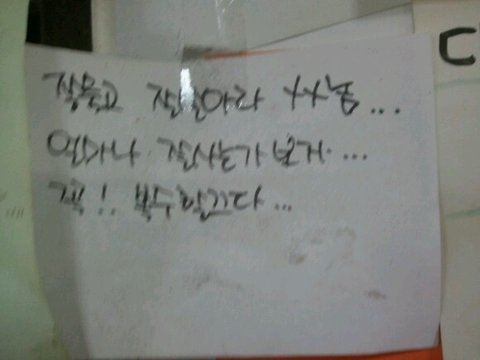 잘먹고 잘살아라 XX놈...
얼마나 잘사는가 보게...
꼭!. 복수할끼다...